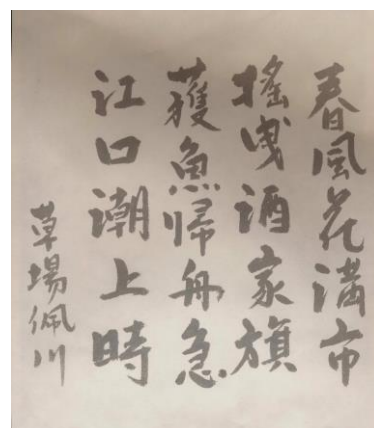 春風花満市
搖曳酒家旗
獲魚帰舟急
江口潮上時
草場佩川